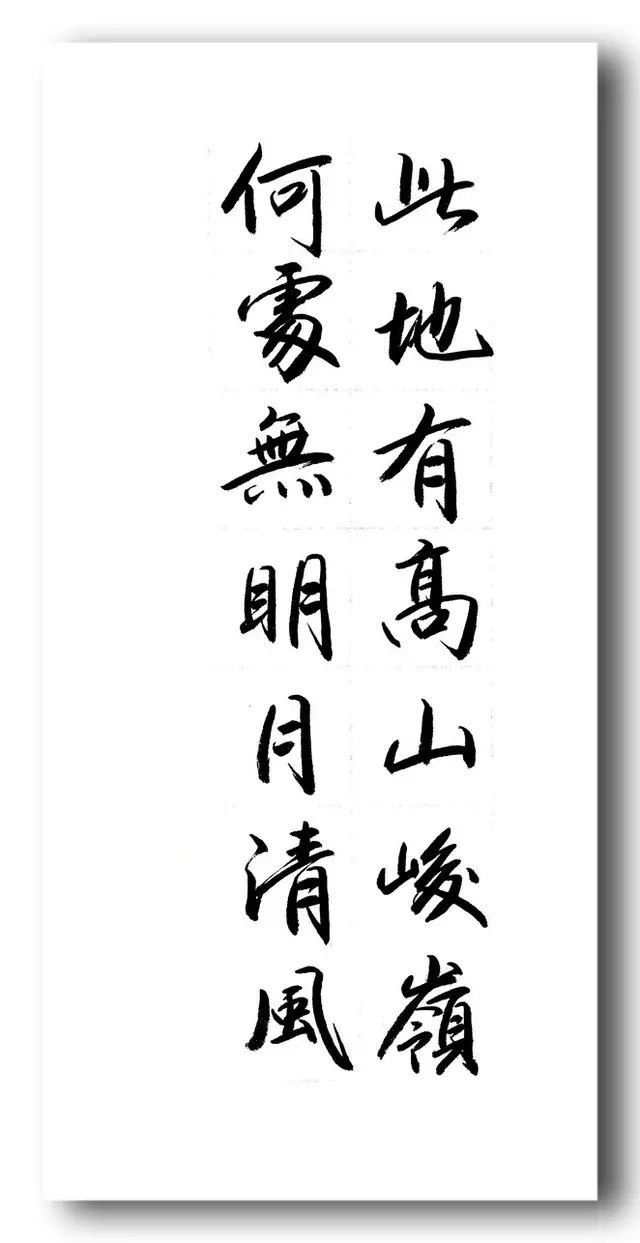 此地有高山峻嶺
何處無明月清風